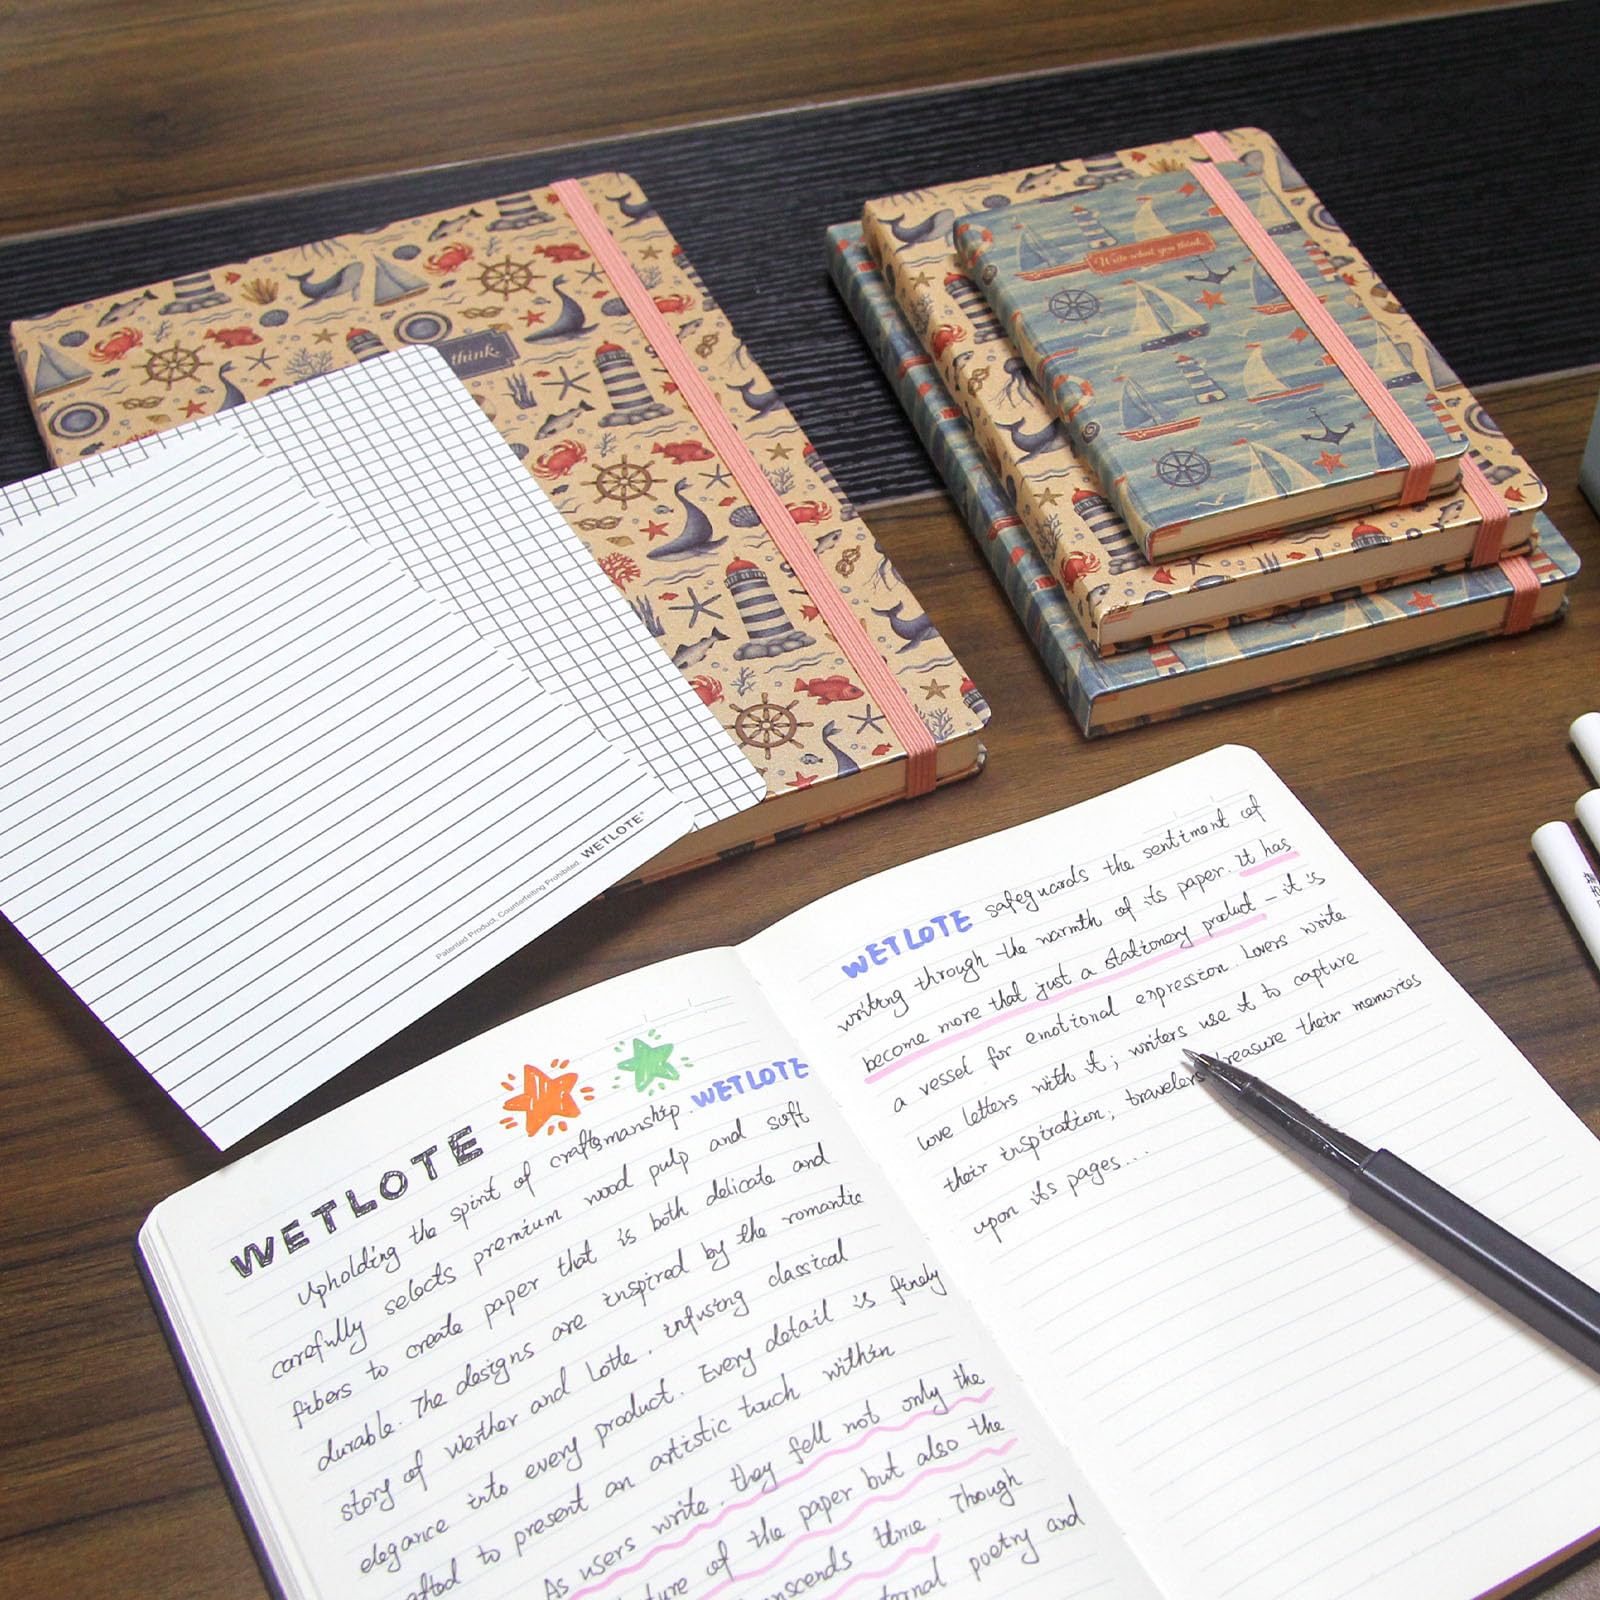 think.
Write what you think.
WETLOTE®
Patented Product, Counterfeiting Prohibited.
WETLOTE
Upholding the spirit of craftsmanship. WETLOTE
carefully selects premium wood pulp and soft
fibers to create paper that is both delicate and
durable. The designs are inspired by the romantic
story of Werther and Lotte. infusing classical
elegance into every product. Every detail is finely
to present an artistic touch within
As users write. they fell not only the
of the paper but also the
time. Though
poetry and
WETLOTE safeguards the sentiment of
writing through the warmth of its paper. It has
become more that just a stationery product - it is
a vessel for emotional expression. Lovers write
love letters with it; writers use it to capture
their inspiration; travelers treasure their memories
upon its pages...